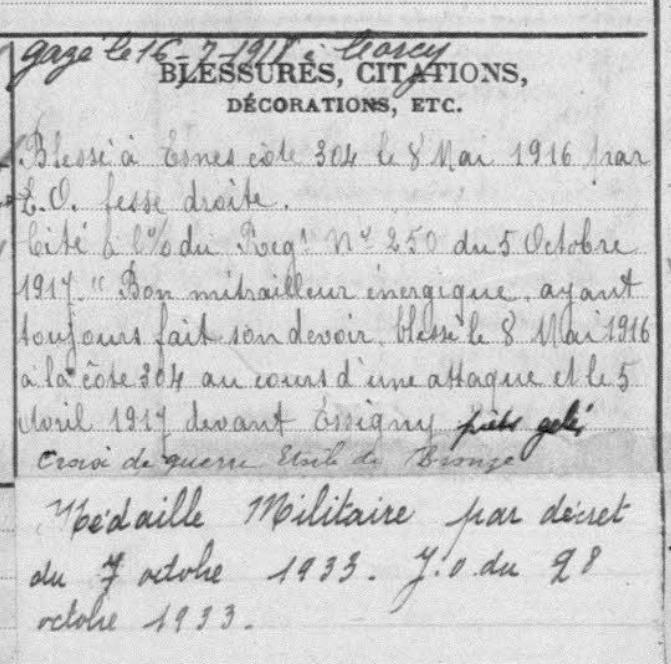 gazé le 16-7-1918 à
BLESSURES, CITATIONS,
DÉCORATIONS, ETC.
Blessé à Esnes côte 304 le 8 Mai 1916 par
E.O. fesse droite.
Cité à l'O/ du Regt No 250 du 5 Octobre
1917. " Bon mitrailleur énergique, ayant
toujours fait son devoir, blessé le 8 Mai 1916
à la côte 304 au cours d'une attaque et le 5
Avril 1917 devant Essigny pieds gelés
Croix de guerre Etoile de Bronze
Médaille Militaire par décret
du 7 octobre 1933. J.O. du 28
octobre 1933.